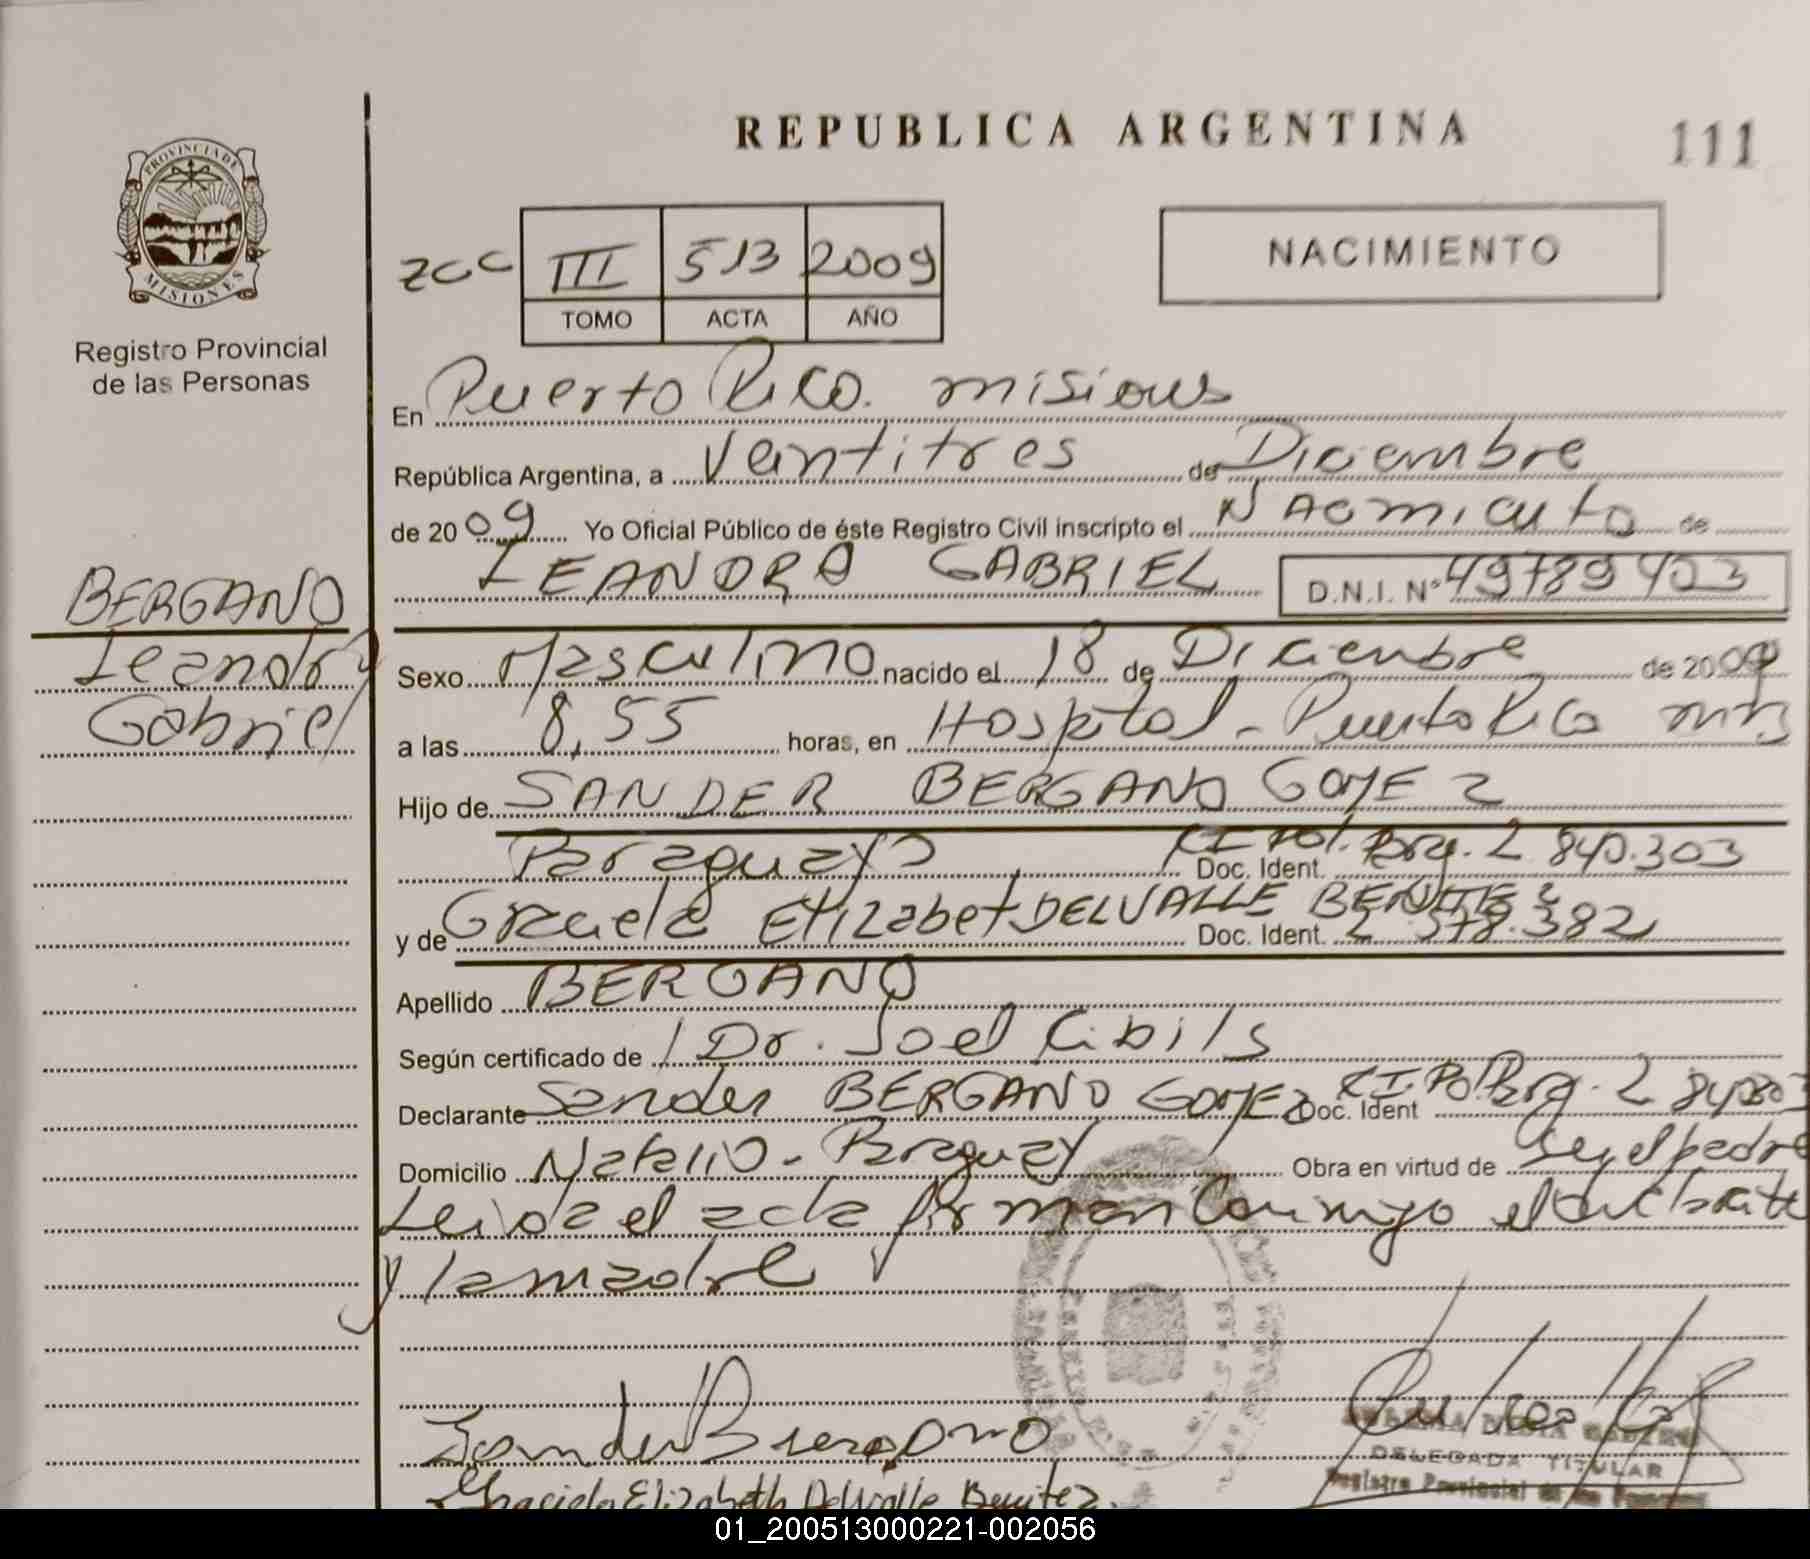 REPUBLICA ARGENTINA
111
PROVINCIA DE
MISIONES
Registro Provincial
de las Personas
ZCC III 513 2009
TOMO ACTA AÑO
NACIMIENTO
En Puerto Rico. misiones
República Argentina, a Veintitres de Diciembre
de 2009 Yo Oficial Público de éste Registro Civil inscripto el Nacimiento de
LEANDRO GABRIEL D.N.I. Nº 49789403
BERGANO
Leandro
Gabriel
Sexo Masculino nacido el 18 de Diciembre de 2009
a las 8,55 horas, en Hospital - Puerto Rico mns
Hijo de SANDER BERGANO GOMEZ
Paraguayo Doc. Ident. CI Pol. Prg. 2 840.303
y de Graciela Elizabet DELVALLE BENITEZ Doc. Ident. 2 578.382
Apellido BERGANO
Según certificado de Dr. Joel Cibils
Declarante Sander BERGANO GOMEZ Doc. Ident CI. Pol Prg. 2 840303
Domicilio Natalio - Paraguay Obra en virtud de ser el padre
Leida el acta firman conmigo el declarante
y la madre
Sander Bergano
Graciela Elizabeth Delvalle Benitez
DELEGADA TITULAR
Registro Provincial de las Personas
01_200513000221-002056